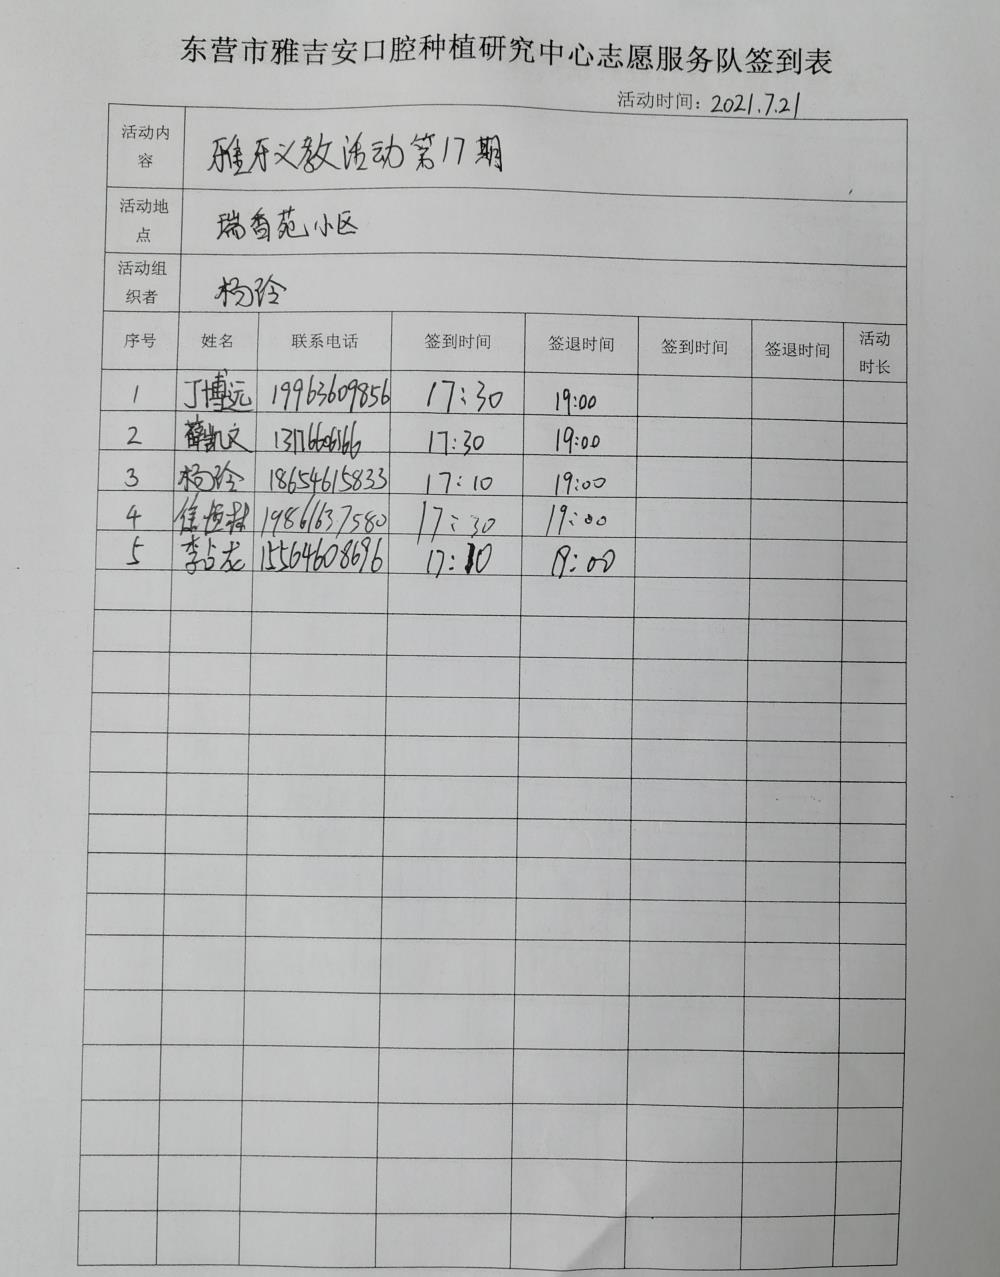 东营市雅吉安口腔种植研究中心志愿服务队签到表
活动时间：2021.7.21
活动内容 雅牙义教活动第17期
活动地点 瑞香苑小区
活动组织者 杨玲
序号 姓名 联系电话 签到时间 签退时间 签到时间 签退时间 活动时长
1 丁博远 19963609856 17:30 19:00
2 薛凯文 17:30 19:00
3 杨玲 18654615833 17:10 19:00
4 徐恒林 19861637580 17:30 19:00
5 李占龙 15564608696 17:10 19:00